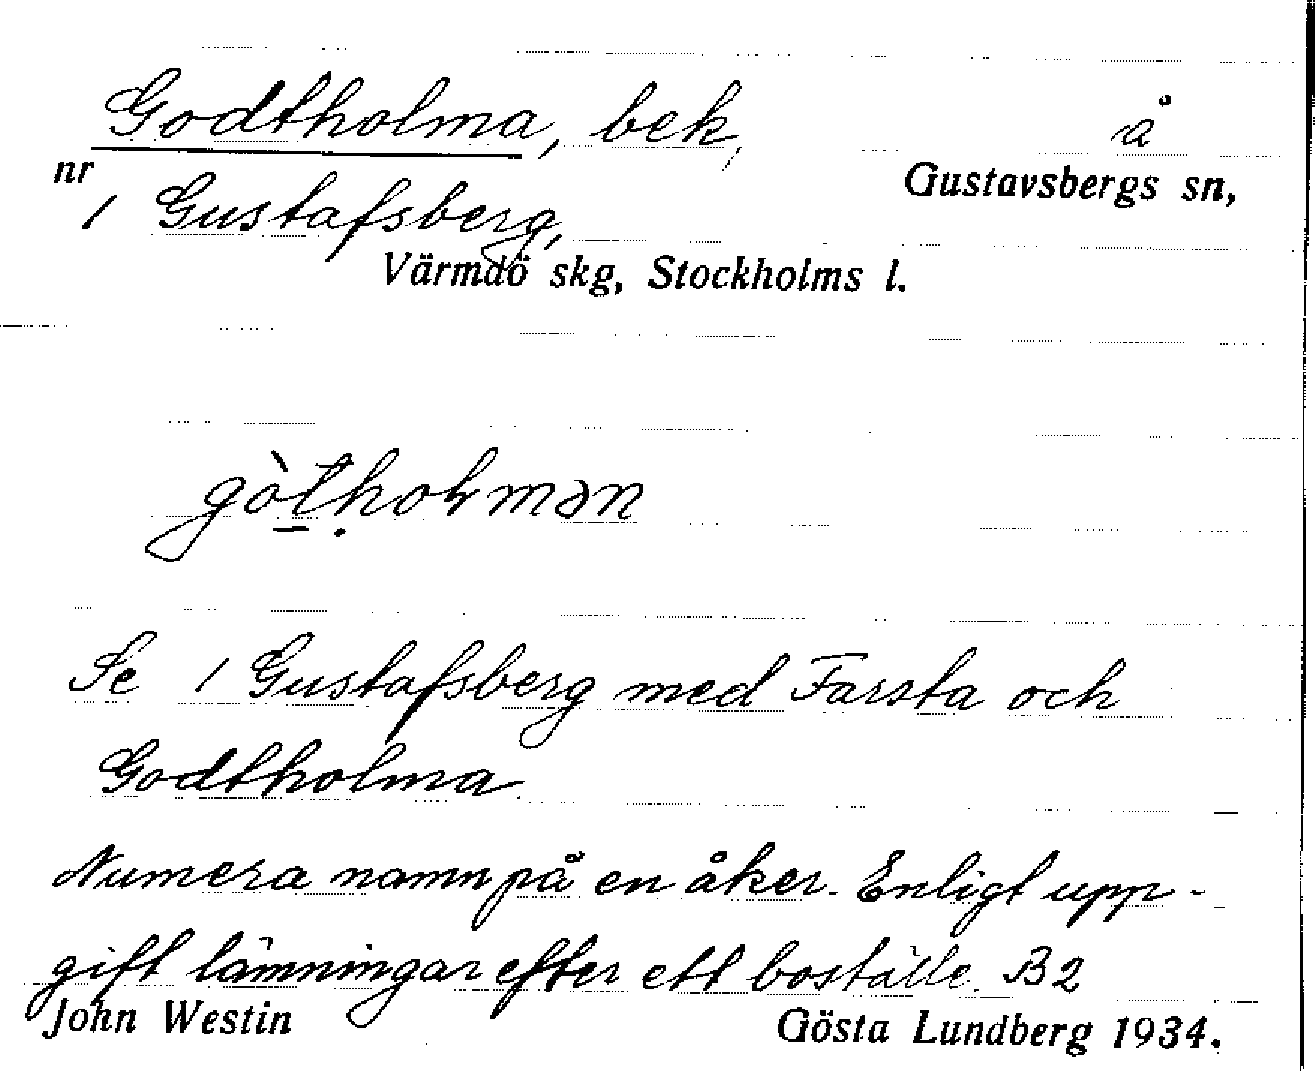 Godtholma, bek, å
nr 1 Gustafsberg, Gustavsbergs sn,
Värmdö skg, Stockholms l.
gòtholmən
Se 1 Gustafsberg med Farsta och
Godtholma.
Numera namn på en åker. Enligt upp-
gift lämningar efter ett boställe. B2
John Westin Gösta Lundberg 1934.